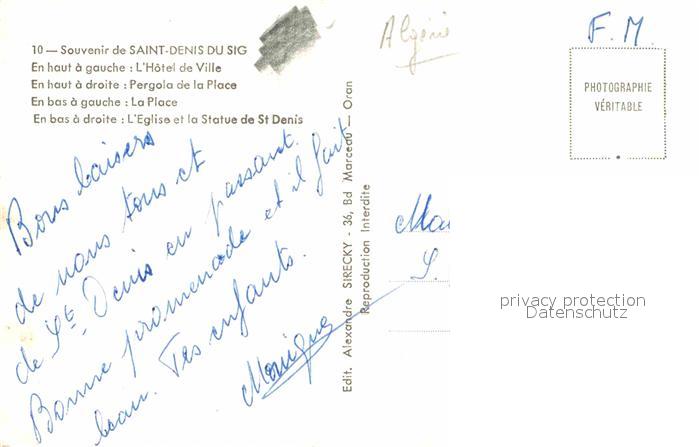 10 — Souvenir de SAINT-DENIS DU SIG
En haut à gauche : L'Hôtel de Ville
En haut à droite : Pergola de la Place
En bas à gauche : La Place
En bas à droite : L'Eglise et la Statue de St Denis
Algérie
F. M.
PHOTOGRAPHIE
VÉRITABLE
Bons baisers
de nous tous et
de St Denis en passant.
Bonne promenade et il fait
beau. Tes enfants.
Monique
Edit. Alexandre SIRECKY - 36, Bd Marceau — Oran
Reproduction Interdite
privacy protection
Datenschutz